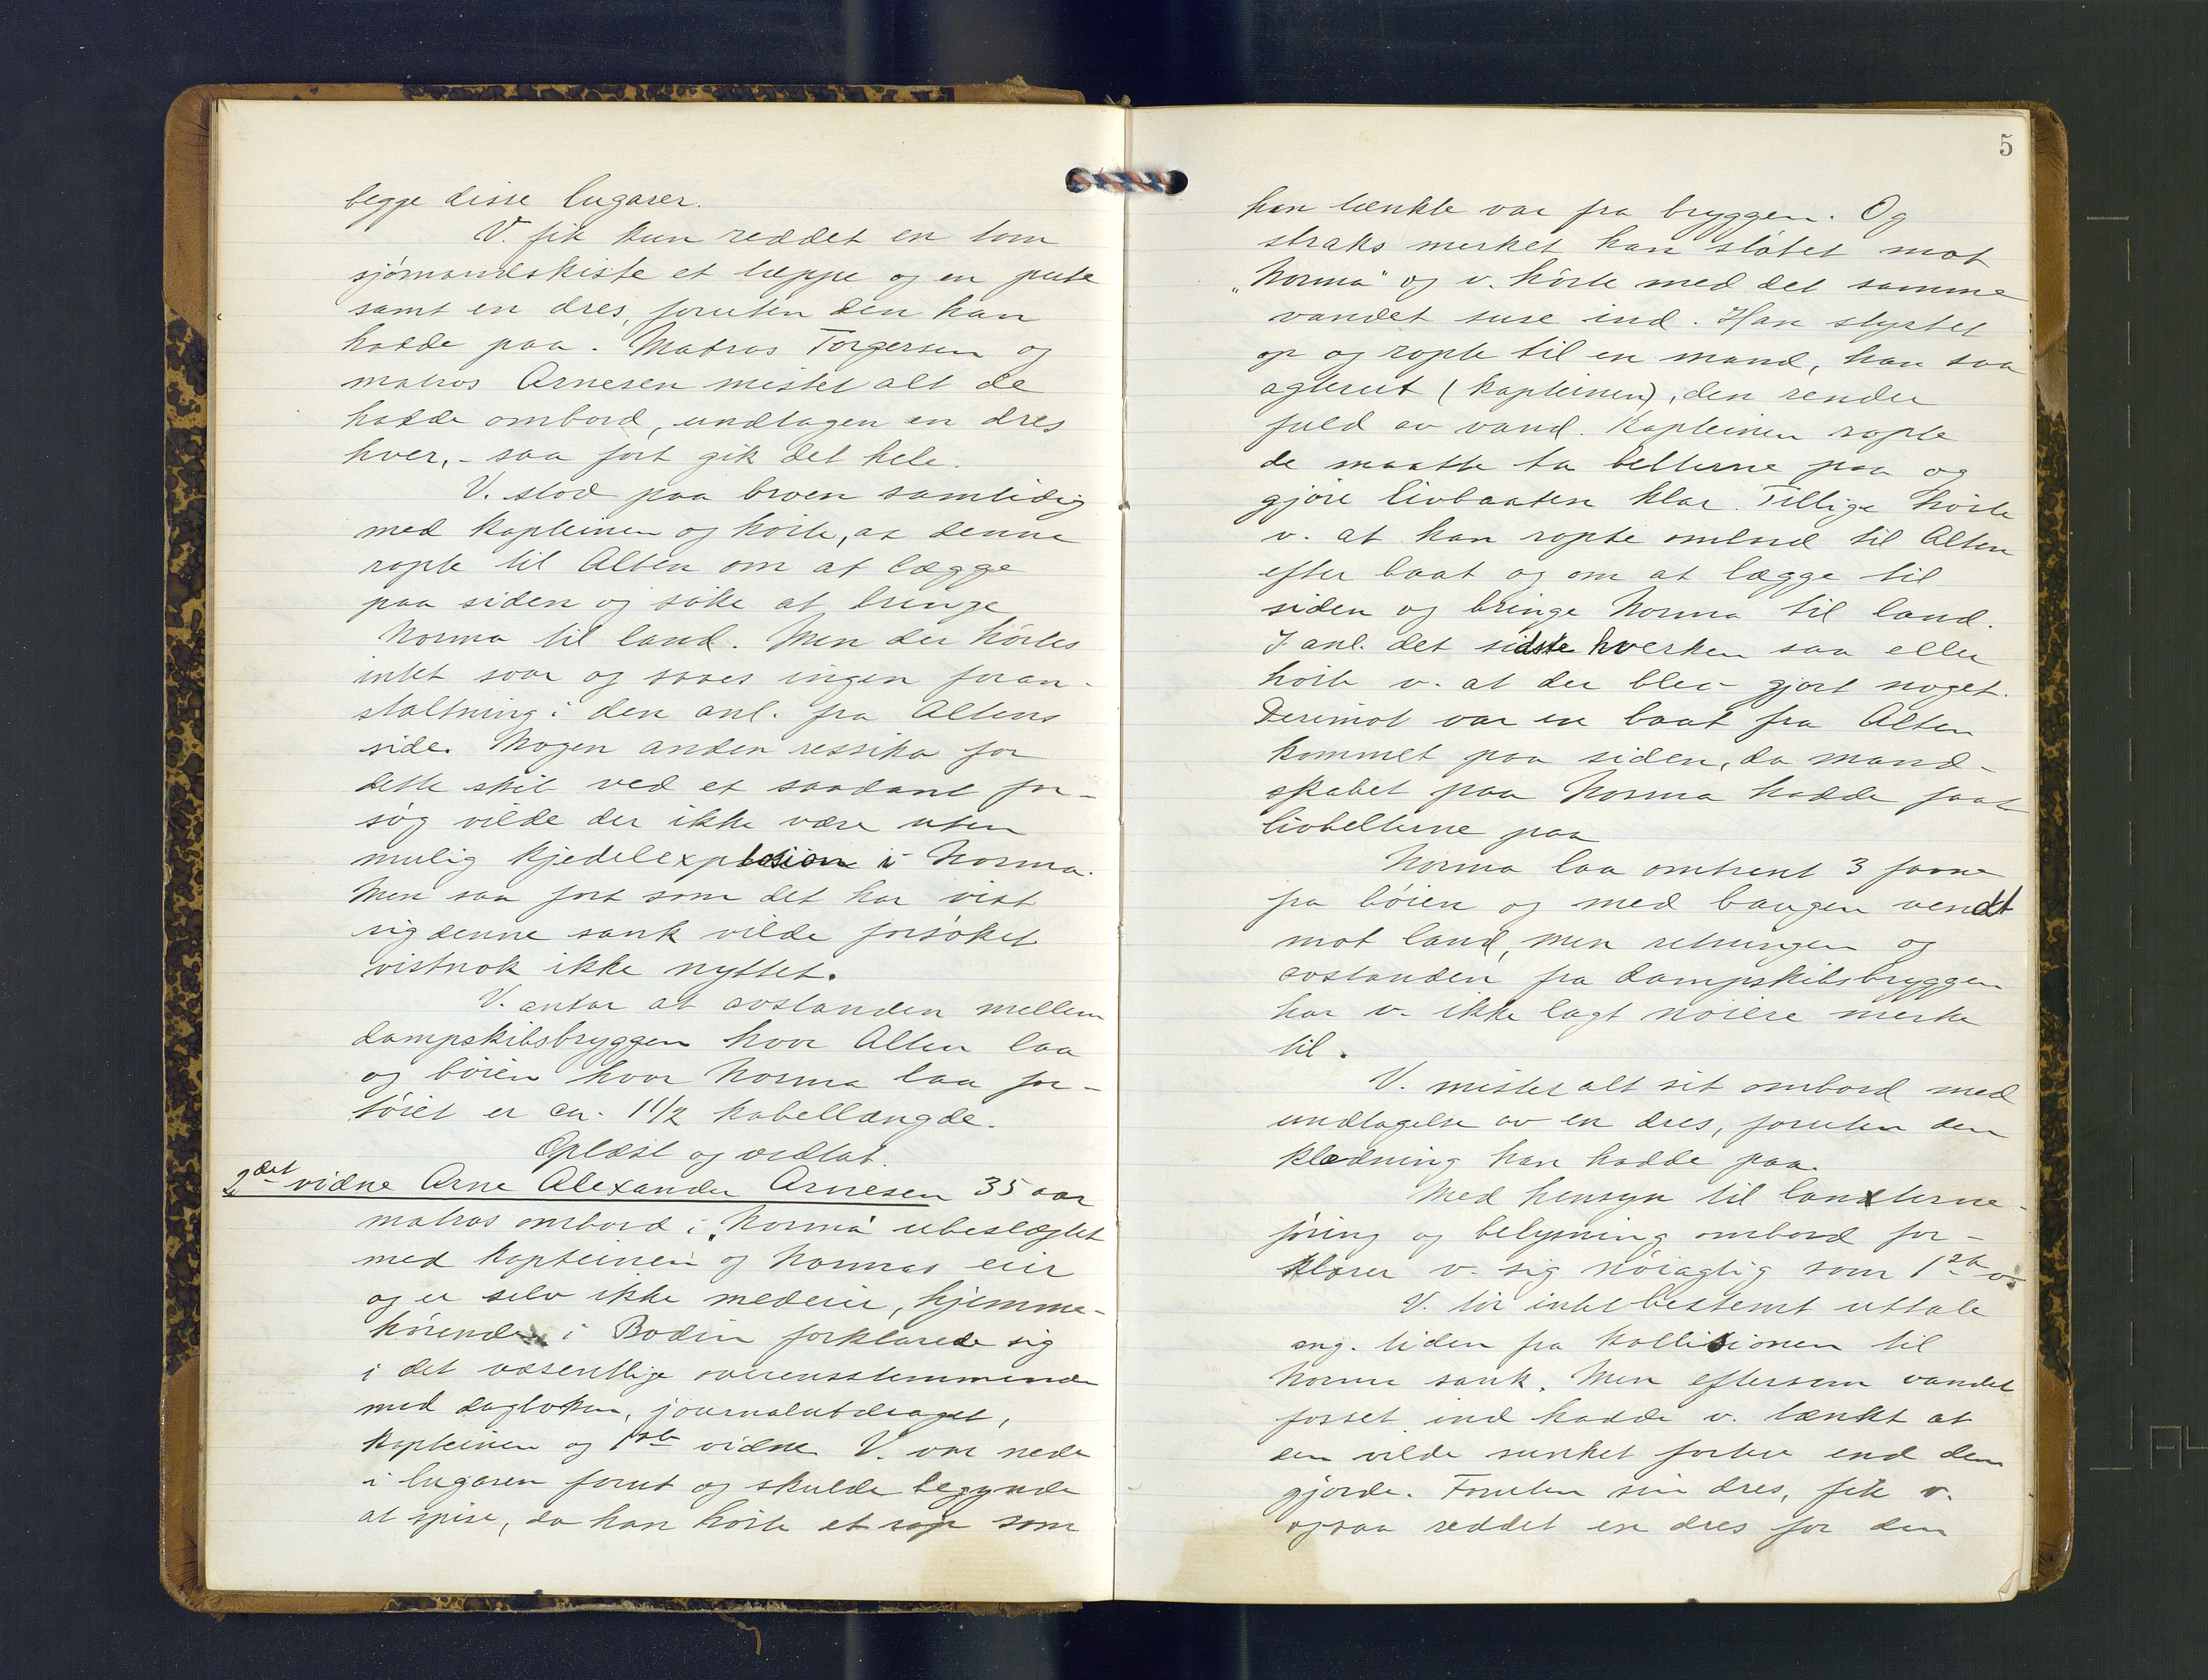 begge disse lugarer.
V. fik kun reddet en tom
sjømandskiste et tæppe og en pute
samt en dres, foruten den han
hadde paa. Matros Torgersen og
matros Arnesen mistet alt de
hadde ombord, undtagen en dres
hver, - saa fort gik det hele.
V. stod paa broen samtidig
med kapteinen og hørte, at denne
ropte til Alten om at lægge
paa siden og søke at bringe
Norma til land. Men der hørtes
intet svar og saaes ingen foran-
staltning i den anl. fra Altens
side. Nogen anden ressiko for
dette skib ved et saadant for-
søg vilde der ikke være uten
mulig kjedelexplosion i Norma.
Men saa fort som det har vist
sig denne sank vilde forsøket
vistnok ikke nyttet.
V. antar at avstanden mellem
dampskibsbryggen hvor Alten laa
og bøien hvor Norma laa for-
tøiet er ca. 1 1/2 kabellængde.
Oplæst og vedtat.
2det vidne Arne Alexander Arnesen 35 aar
matros ombord i „Norma" ubeslægtet
med kapteinen og Normas eier
og er selv ikke medeier, hjemme-
hørende i Bodin forklarede sig
i det væsentlige overensstemmende
med dagboken, journalutdraget,
kapteinen og 1ste vidne. V. var nede
i lugaren forut og skulde begynde
at spise, da han hørte et rop som
5
han tænkte var fra bryggen. Og
straks merket han støtet mot
„Norma" og v. hørte med det samme
vandet suse ind. Han styrtet
op og ropte til en mand, han saa
agterut (kapteinen), den render
fuld av vand. Kapteinen ropte
de maatte ta belterne paa og
gjøre livbaaten klar. Tillige hørte
v. at han ropte ombord til Alten
efter baat og om at lægge til
siden og bringe Norma til land.
I anl. det sidste hverken saa eller
hørte v. at der blev gjort noget.
Derimot var en baat fra Alten
kommet paa siden, da mand-
skabet paa Norma hadde faat
livbelterne paa
Norma laa omtrent 3 favne
fra bøien og med baugen vendt
mot land, men retningen og
avstanden fra dampskibsbryggen
har v. ikke lagt nøiere merke
til.
V. mistet alt sit ombord med
undtagelse av en dres, foruten den
klædning han hadde paa.
Med hensyn til lanterne-
føring og belysning ombord for-
klarer v. sig nøiagtig som 1ste v.
V. tør intet bestemt uttale
ang. tiden fra kollisionen til
Norma sank. Men eftersom vandet
fosset ind hadde v. tænkt at
den vilde sunket fortere end den
gjorde. Foruten sin dres, fik v.
ogsaa reddet en dres for den